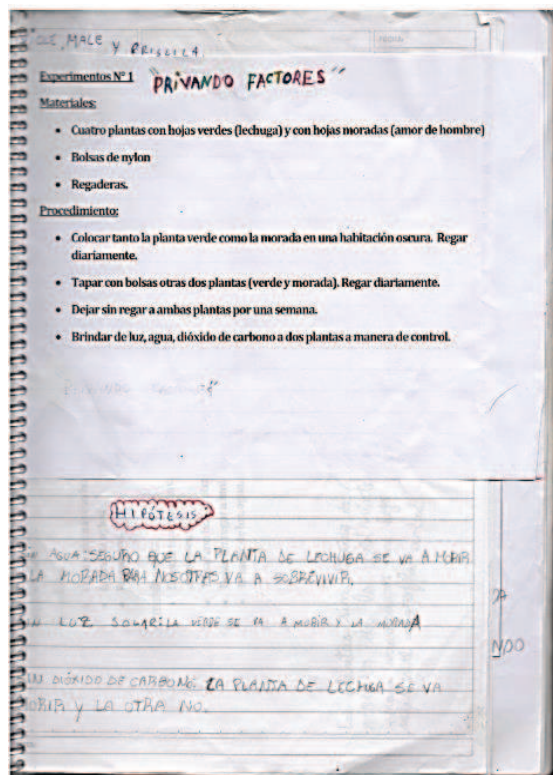 MALE Y PRISCILA
FECHA
Experimentos Nº 1 "PRIVANDO FACTORES"
Materiales:
• Cuatro plantas con hojas verdes (lechuga) y con hojas moradas (amor de hombre)
• Bolsas de nylon
• Regaderas.
Procedimiento:
• Colocar tanto la planta verde como la morada en una habitación oscura. Regar
diariamente.
• Tapar con bolsas otras dos plantas (verde y morada). Regar diariamente.
• Dejar sin regar a ambas plantas por una semana.
• Brindar de luz, agua, dióxido de carbono a dos plantas a manera de control.
HIPÓTESIS
AGUA: SEGURO QUE LA PLANTA DE LECHUGA SE VA A MORIR
LA MORADA PARA NOSOTRAS VA A SOBREVIVIR.
LUZ SOLAR: LA VERDE SE VA A MORIR Y LA MORADA
NDO
DIÓXIDO DE CARBONO: LA PLANTA DE LECHUGA SE VA
ORIR Y LA OTRA NO.